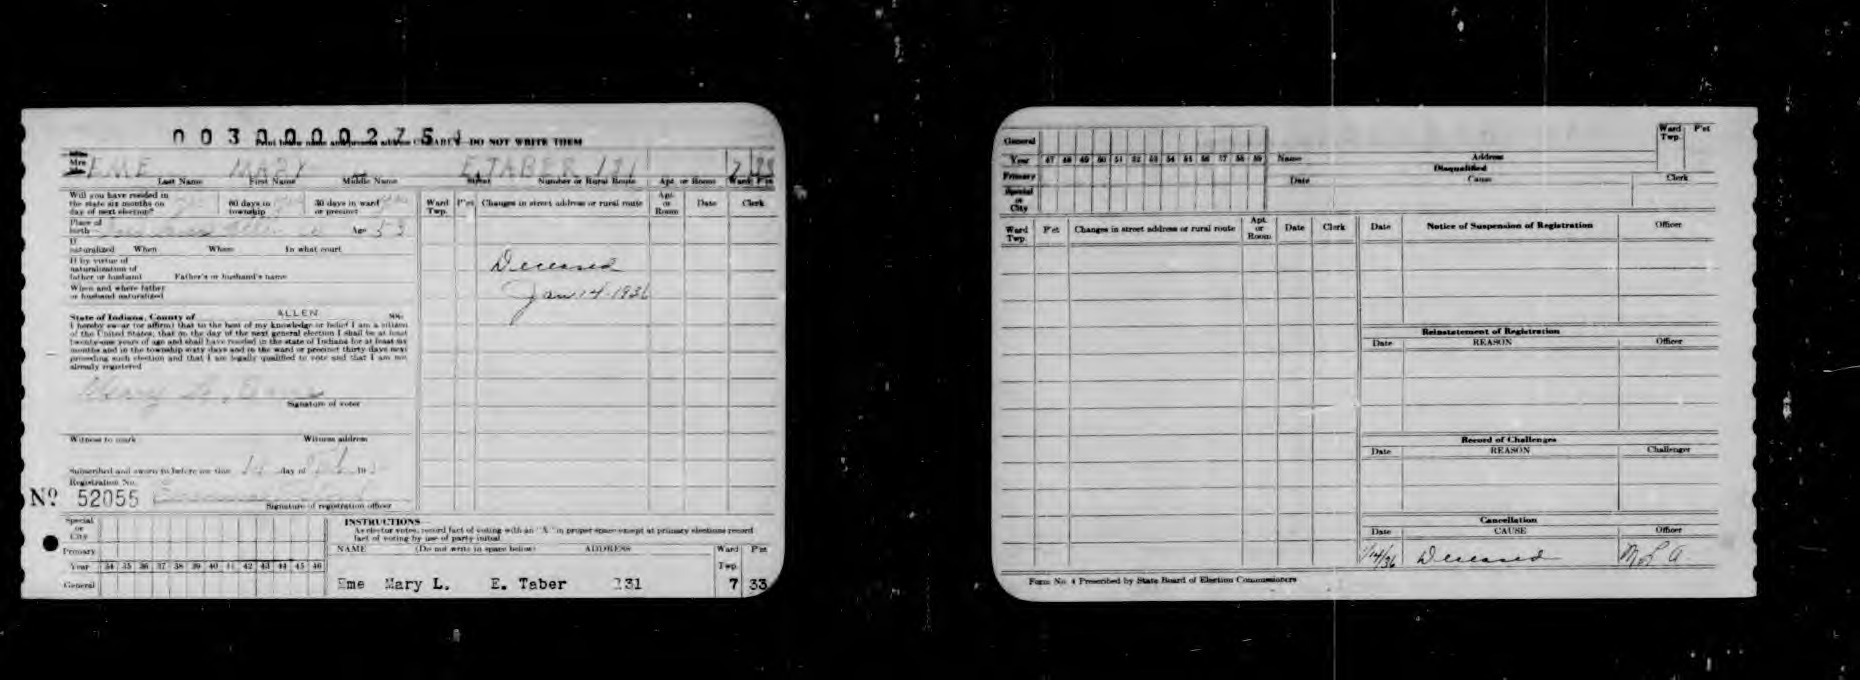 0030000275
Print below name and present address CLEARLY DO NOT WRITE THEM
Mrs EME MARY E. TABER 131 7
Last Name First Name Middle Name Street Number or Rural Route Apt. or Room Ward P'ct
Will you have resided in
the state six months on
day of next election?
60 days in
township
30 days in ward
or precinct
Place of
birth Age 53
If
naturalized When Where In what court
If by virtue of
naturalization of
father or husband Father's or husband's name
When and where father
or husband naturalized
State of Indiana, County of ALLEN SS:
I hereby swear (or affirm) that to the best of my knowledge or belief I am a citizen
of the United States, that on the day of the next general election I shall be at least
twenty-one years of age and shall have resided in the state of Indiana for at least six
months and in the township sixty days and in the ward or precinct thirty days next
preceding such election and that I am legally qualified to vote and that I am not
already registered
Mary L. Eme
Signature of voter
Witness to mark Witness address
Subscribed and sworn to before me this 14 day of 193
Registration No.
No 52055
Signature of registration officer
Ward
Twp.
P'ct
Changes in street address or rural route
Apt.
or
Room
Date
Clerk
Deceased
Jan 14-1936
Special
or
City
Primary
Year 34 35 36 37 38 39 40 41 42 43 44 45 46
General
INSTRUCTIONS
As elector votes, record fact of voting with an "X" in proper space except at primary elections record
fact of voting by use of party initial.
NAME (Do not write in space below) ADDRESS Ward Twp. P'ct
Eme Mary L. E. Taber 131 7 33
General
Year 47 48 49 50 51 52 53 54 55 56 57 58 59
Primary
Special
or
City
Name Address
Ward
Twp.
P'ct
Disqualified
Date Cause Clerk
Ward
Twp
P'ct
Changes in street address or rural route
Apt.
or
Room
Date
Clerk
Date Notice of Suspension of Registration Officer
Reinstatement of Registration
Date REASON Officer
Record of Challenges
Date REASON Challenger
Cancellation
Date CAUSE Officer
1/14/36 Deceased
Form No. 4 Prescribed by State Board of Election Commissioners